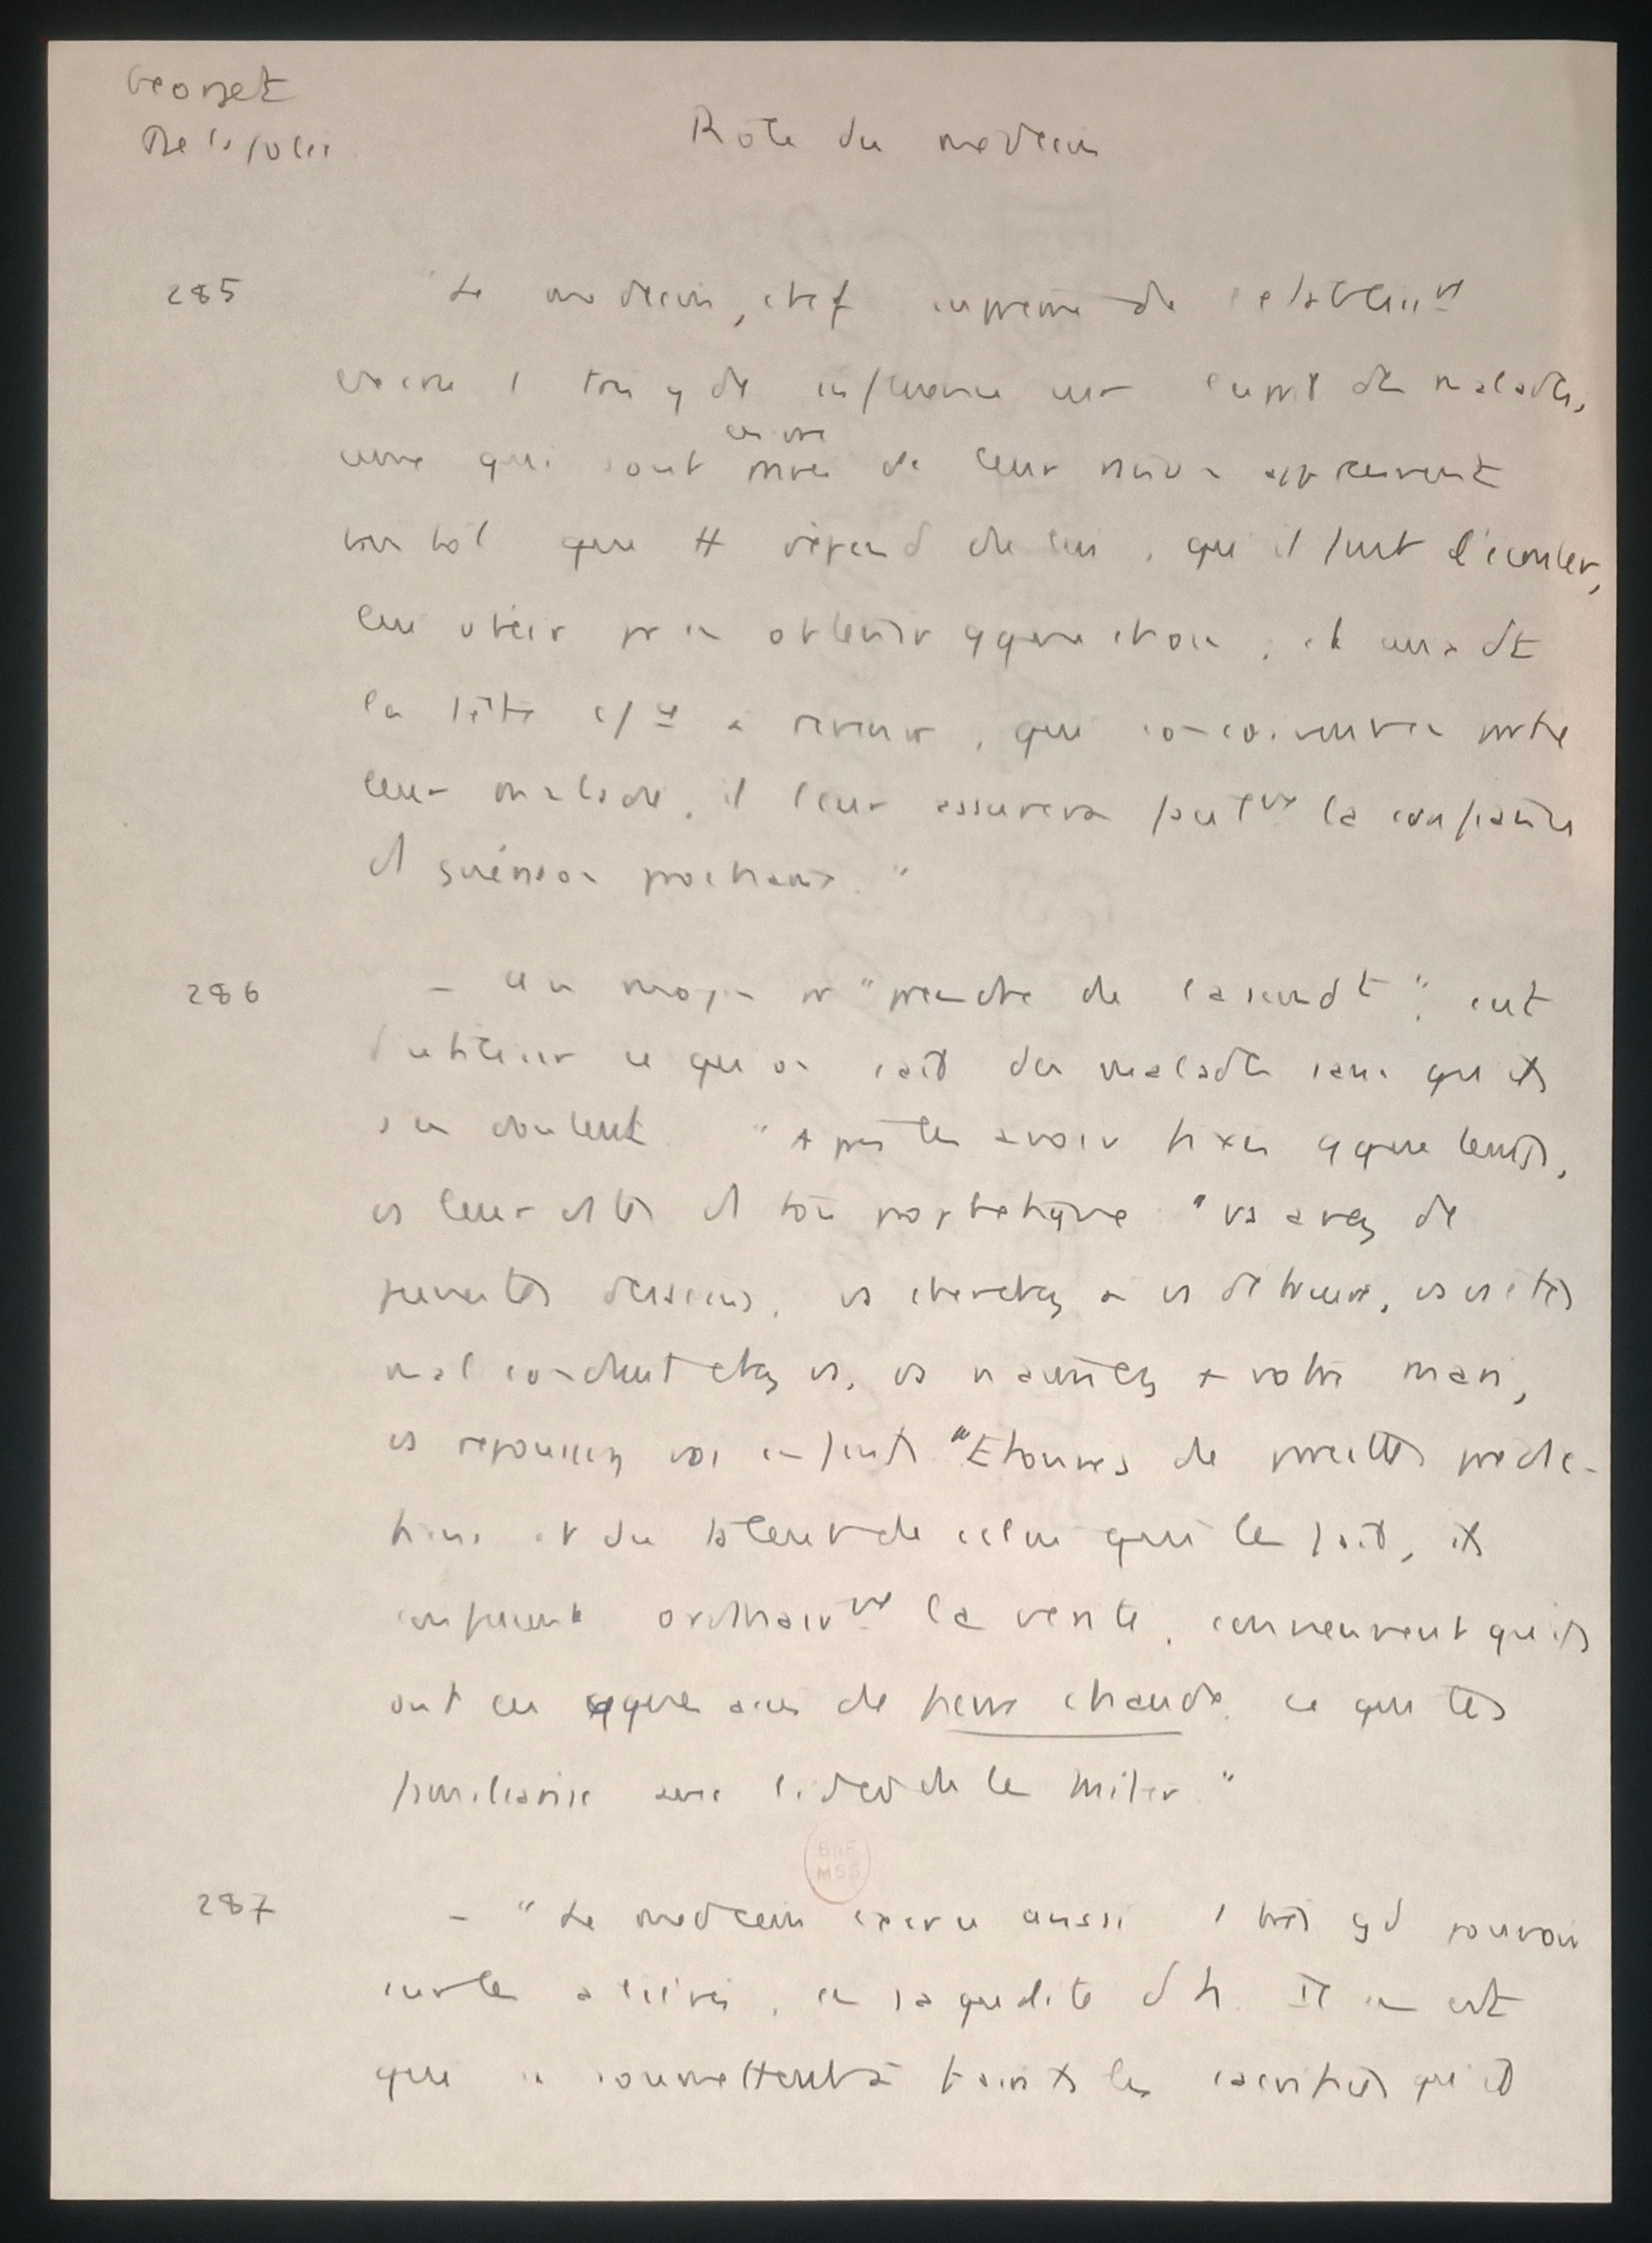 Georget
De la folie
Rôle du médecin
285 "Le médecin, chef suprême de l'établisst
exerce 1 très gde influence sur l'esprit des malades,
ceux qui sont privés de leur raison
ces
bientôt que tt dépend de lui, qu'il faut l'écouter,
lui obéir pr en obtenir qque chose ;
la tête
leur maladie, il leur assurera la confiance
et guérison prochaine."
286 – Un moyen pr "prendre de l'ascendt", c'est
d'utiliser ce qu'on sait des malades sans qu'ils
s'en doutent "Après les avoir fixés qque temps,
on leur dit d'1 ton prophétique "vs avez de
funestes desseins, vs cherchez à vs détruire, vs vs êtes
mal conduit chez vs, vs n'aimez + votre mari,
vs repoussez vos enfants "Etonnés de pareilles prédic-
tions et du talent de celui qui les fait, ils
confessent ordinairt la vérité, conviennent qu'ils
ont eu qques accès de fièvre chaude, ce qui les
familiarise avec l'idée de les traiter."
BnF
MSS
287 – "Le médecin exerce aussi 1 très gd pouvoir
sur les aliénés, en sa qualité d'h. Il en est
qui se soumettent à tous les sacrifices qu'il